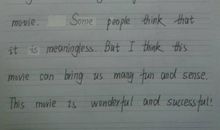 movie. Some people think that
it is meaningless. But I think this
movie can bring us many fun and sense.
This movie is wonderful and successful!